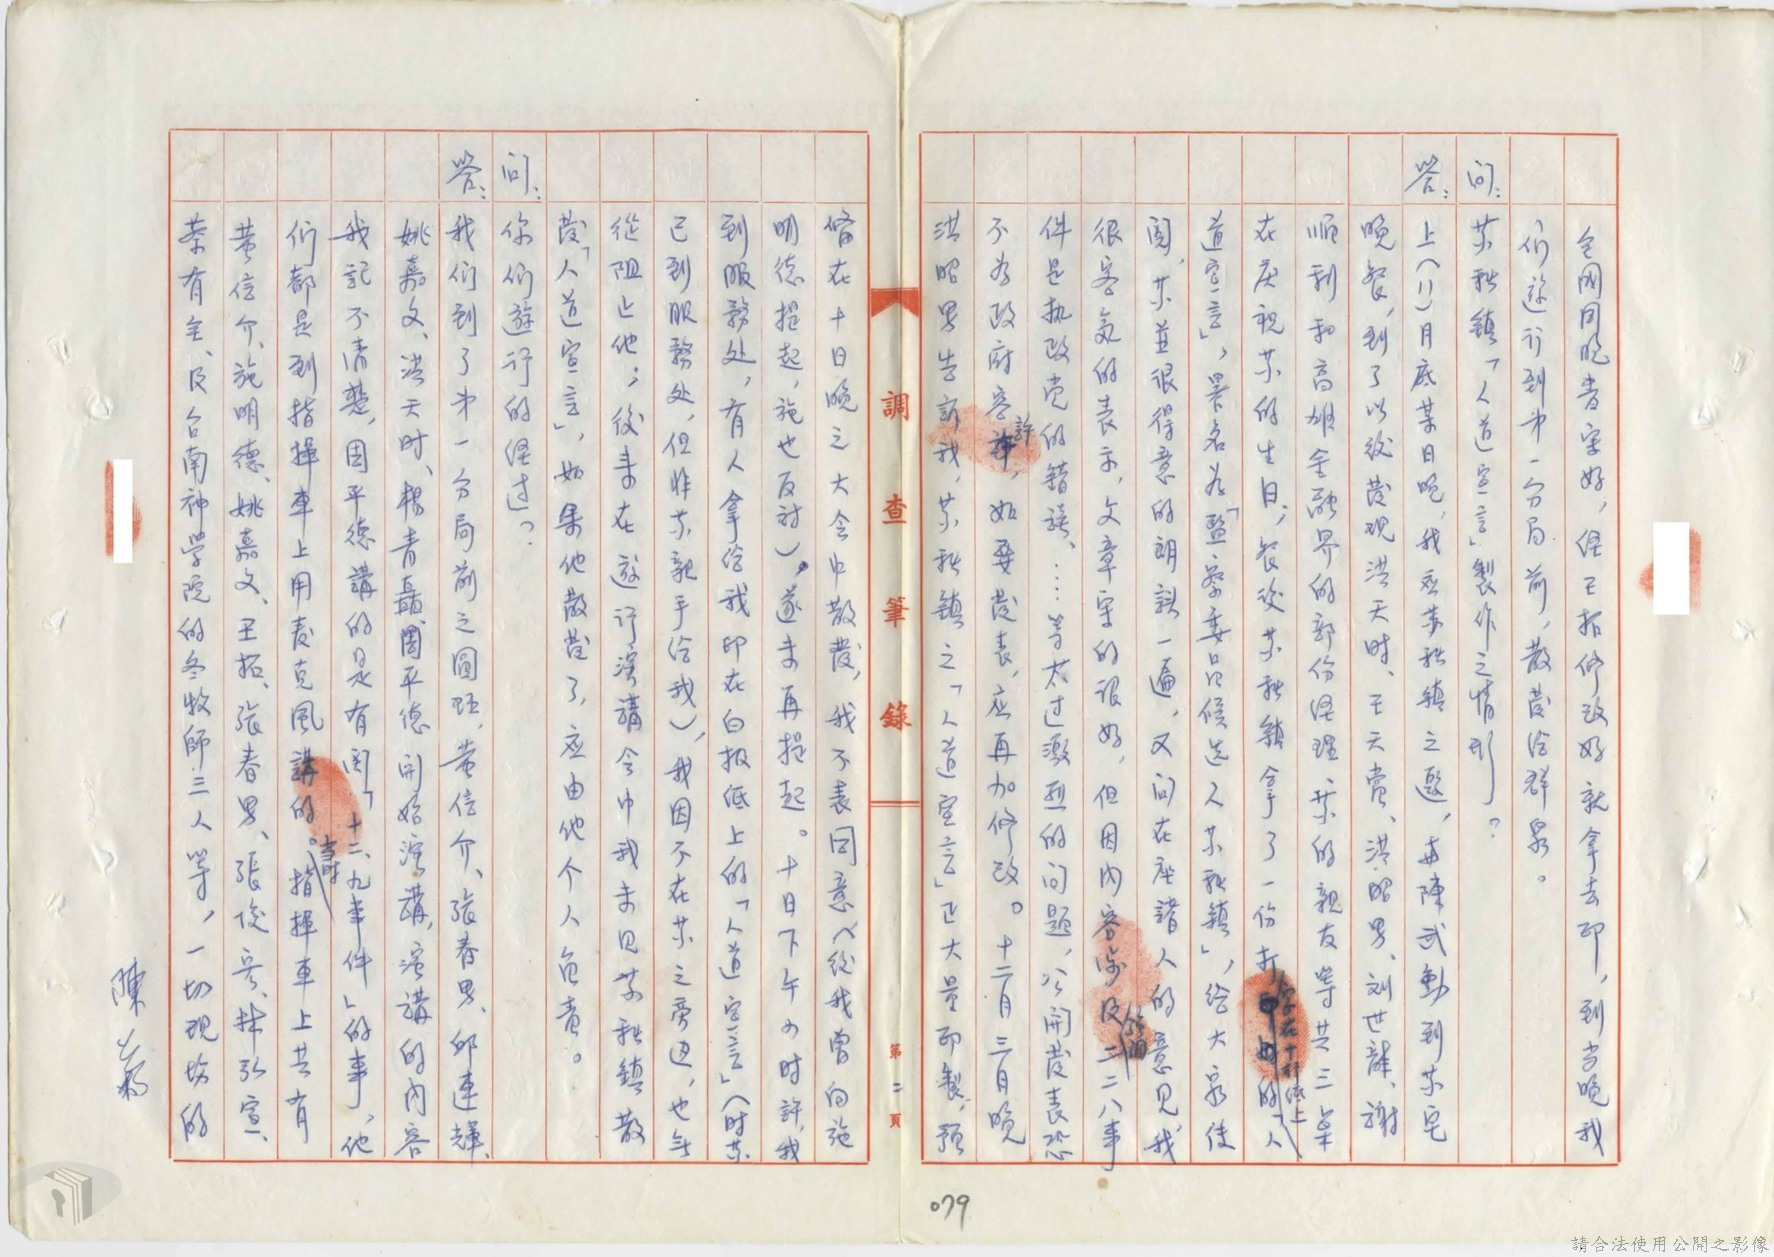 全開同胞書字好，經王拓修改好就拿去印，到当晚我
们遊行到第一分局前，散发给群众。
问：苏秋鎮「人道宣言」製作之情形？
答：上(11)月底某日晚，我应苏秋鎮之邀，与陳武勳到苏宅
晚餐，到了以後发现洪天时、王天赏、洪昭男、刘世龍、謝
順利和高雄金融界的部份經理苏的親友等共三桌
在庆祝苏的生日；餐後苏秋鎮拿了一份打字在十行纸上的「人
道宣言」，署名为「監察委员候选人苏秋鎮」，给大家传
閱，苏並很得意的朗読一遍，又问在座諸人的意见，我
很客氣的表示，文章写的很好，但因内容涉及二二八事
件是执政党的錯誤、…等太过激烈的问题，公開发表恐
不为政府容許，如要发表，应再加修改。十二月三日晚
洪昭男告訴我，苏秋鎮之「人道宣言」已大量印製，预
調查筆錄
第二頁
備在十日晚之大会中散发，我不表同意(後我曾向施
明德提起，施也反对)，遂未再提起。十日下午六时許，我
到服務处，有人拿给我印在白报纸上的「人道宣言」(时苏
已到服務处，但非苏親手给我)，我因不在苏之旁边，也无
從阻止他；後来在遊行演講会中我未见苏秋鎮散
发「人道宣言」，如果他散发了，应由他个人负责。
问：你们遊行的经过？
答：我们到了第一分局前之圓环，黄信介、張春男、邱連輝、
姚嘉文、洪天时、楊青矗、周平德開始演講，演講的内容
我記不清楚，因平德講的是有関「十二、九事件」的事，他
们都是到指揮車上用麦克風講的。当时指揮車上共有
黄信介、施明德、姚嘉文、王拓、張春男、張俊宏、林弘宣、
蔡有全、及台南神学院的冬牧師三人等，一切现场的
陳
079
請合法使用公開之影像